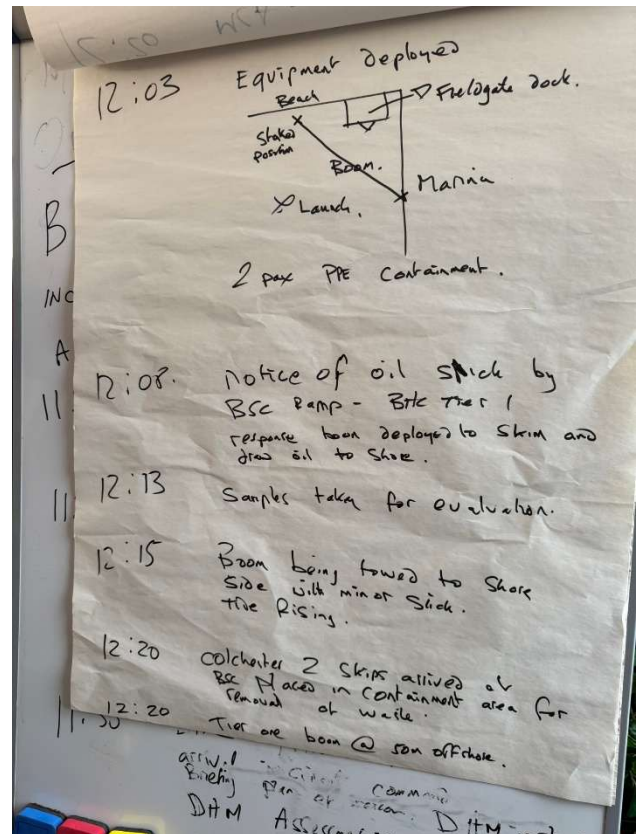 15:50
12:03 Equipment deployed
Beach
Fieldgate dock.
Staked
position
Boom.
Marina
Launch.
2 pax PPE Containment.
12:08. notice of oil slick by
BSC Ramp - BHC Tier 1
response boom deployed to skim and
draw oil to shore.
12:13 Samples taken for evaluation.
12:15 Boom being towed to shore
side with minor slick.
tide Rising.
12:20 Colchester 2 skips arrived at
BSC Placed in containment area for
removal of waste.
12:20 Tier one boom @ 50m offshore.
B
INC
A
11.
11
11:30
arrival Command
Briefing DHM
DHM